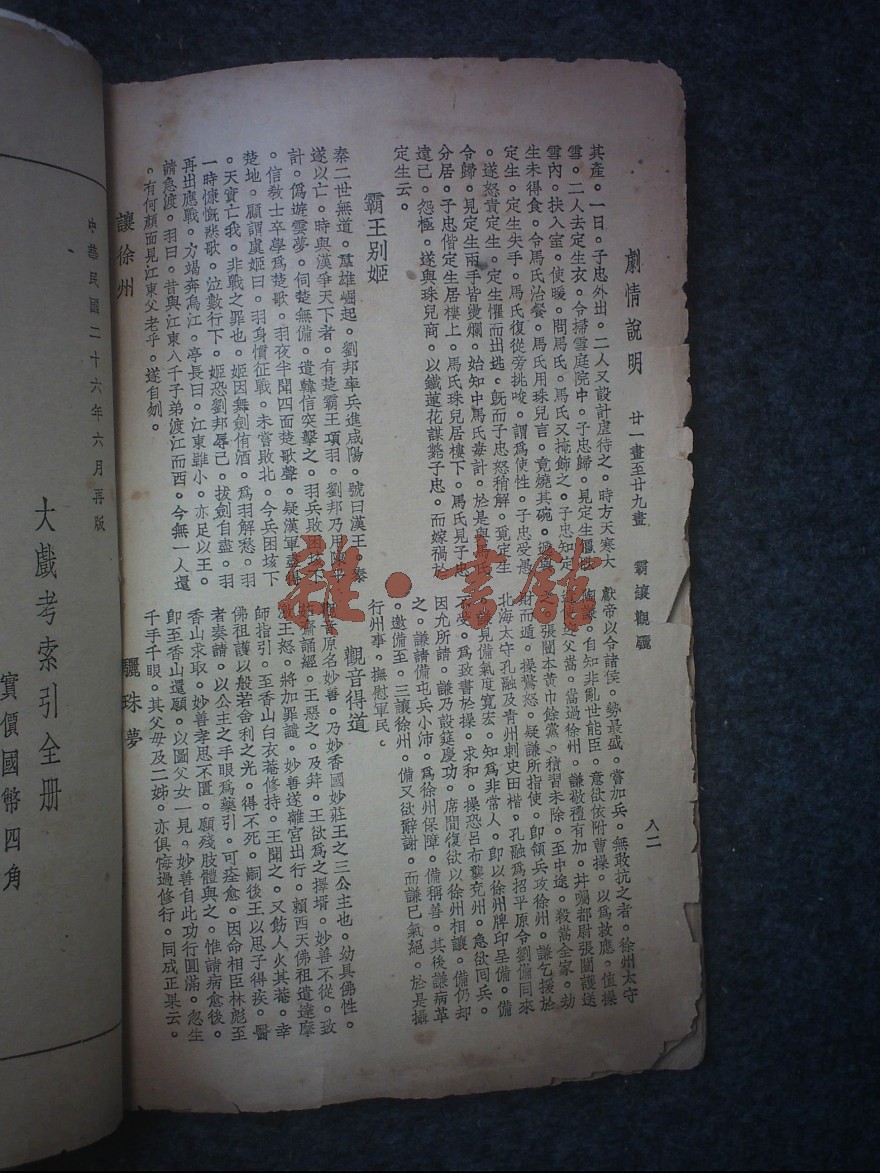 劇情說明　廿一畫至廿九畫　霸讓觀驪　八二
其產。一日。子忠外出。二人又設計虐待之。時方天寒大
雪。二人去定生衣。令掃雪庭院中。子忠歸。見定生
雪內。扶入室。使暖。問馬氏。馬氏又掩飾之。子忠知定
生未得食。令馬氏治餐。馬氏用珠兒言。竟燒其碗。
定生。定生失手。馬氏復從旁挑唆。謂爲使性。子忠受愚
。遂怒責定生。定生懼而出逃。旣而子忠怒稍解。覓定生
令歸。見定生兩手皆燙爛。始知中馬氏毒計。於是與馬氏
分居。子忠偕定生居樓上。馬氏珠兒居樓下。馬氏見子忠
遠己。怨極。遂與珠兒商。以鐵蓮花謀斃子忠。而嫁禍於
定生云。
霸王别姬
秦二世無道。羣雄崛起。劉邦率兵進咸陽。號曰漢王。秦
遂以亡。時與漢爭天下者。有楚霸王項羽。劉邦乃用陳平
計。僞遊雲夢。伺楚無備。遣韓信突擊之。羽兵敗困垓下
。信敎士卒學爲楚歌。羽夜半聞四面楚歌聲。疑漢軍
楚地。顧謂虞姬曰。羽身慣征戰。未嘗敗北。今兵困垓下
。天實亡我。非戰之罪也。姬因舞劍侑酒。爲羽解愁。羽
一時慷慨悲歌。泣數行下。姬恐劉邦辱己。拔劍自盡。羽
再出應戰。方竭奔烏江。亭長曰。江東雖小。亦足以王。
請急渡。羽曰。昔與江東八千子弟渡江而西。今無一人還
。有何顏面見江東父老乎。遂自刎。
讓徐州
獻帝以令諸侯。勢最盛。嘗加兵。無敢抗之者。徐州太守
陶謙。自知非亂世能臣。意欲依附曹操。以爲救應。值操
父嵩。嵩過徐州。謙敬禮有加。幷囑都尉張闓護送
。張闓本黃巾餘黨。積習未除。至中途。殺嵩全家。劫
財而遁。操驚怒。疑謙所指使。卽領兵攻徐州。謙乞援於
北海太守孔融及青州刺史田楷。孔融爲招平原令劉備同來
。見備氣度寬宏。知爲非常人。卽以徐州牌印呈備。備
不受。爲致書於操。求和。操恐呂布襲兗州。急欲回兵。
因允所請。謙乃設筵慶功。席間復欲以徐州相讓。備仍却
之。謙請備屯兵小沛。爲徐州保障。備稱善。其後謙病革
。邀備至。三讓徐州。備又欲辭謝。而謙已氣絕。於是攝
行州事。撫慰軍民。
觀音得道
觀音原名妙善。乃妙香國妙莊王之三公主也。幼具佛性。
茹齋誦經。王惡之。及笄。王欲爲之擇壻。妙善不從。致
激王怒。將加罪譴。妙善遂離宮出行。賴西天佛祖遣達摩
師指引。至香山白衣菴修持。王聞之。又飭人火其菴。幸
佛祖護以般若舍利之光。得不死。嗣後王以思子得疾。醫
者奏請。以公主之手眼爲藥引。可痊愈。因命相臣林彪至
香山求取。妙善孝思不匱。願殘肢體與之。惟請病愈後。
卽至香山還願。以圖父女一見。妙善自此功行圓滿。忽生
千手千眼。其父母及二姊。亦俱悔過修行。同成正果云。
驪珠夢
中華民國二十六年六月再版
大戲考索引全册
實價國幣四角
雜·書館